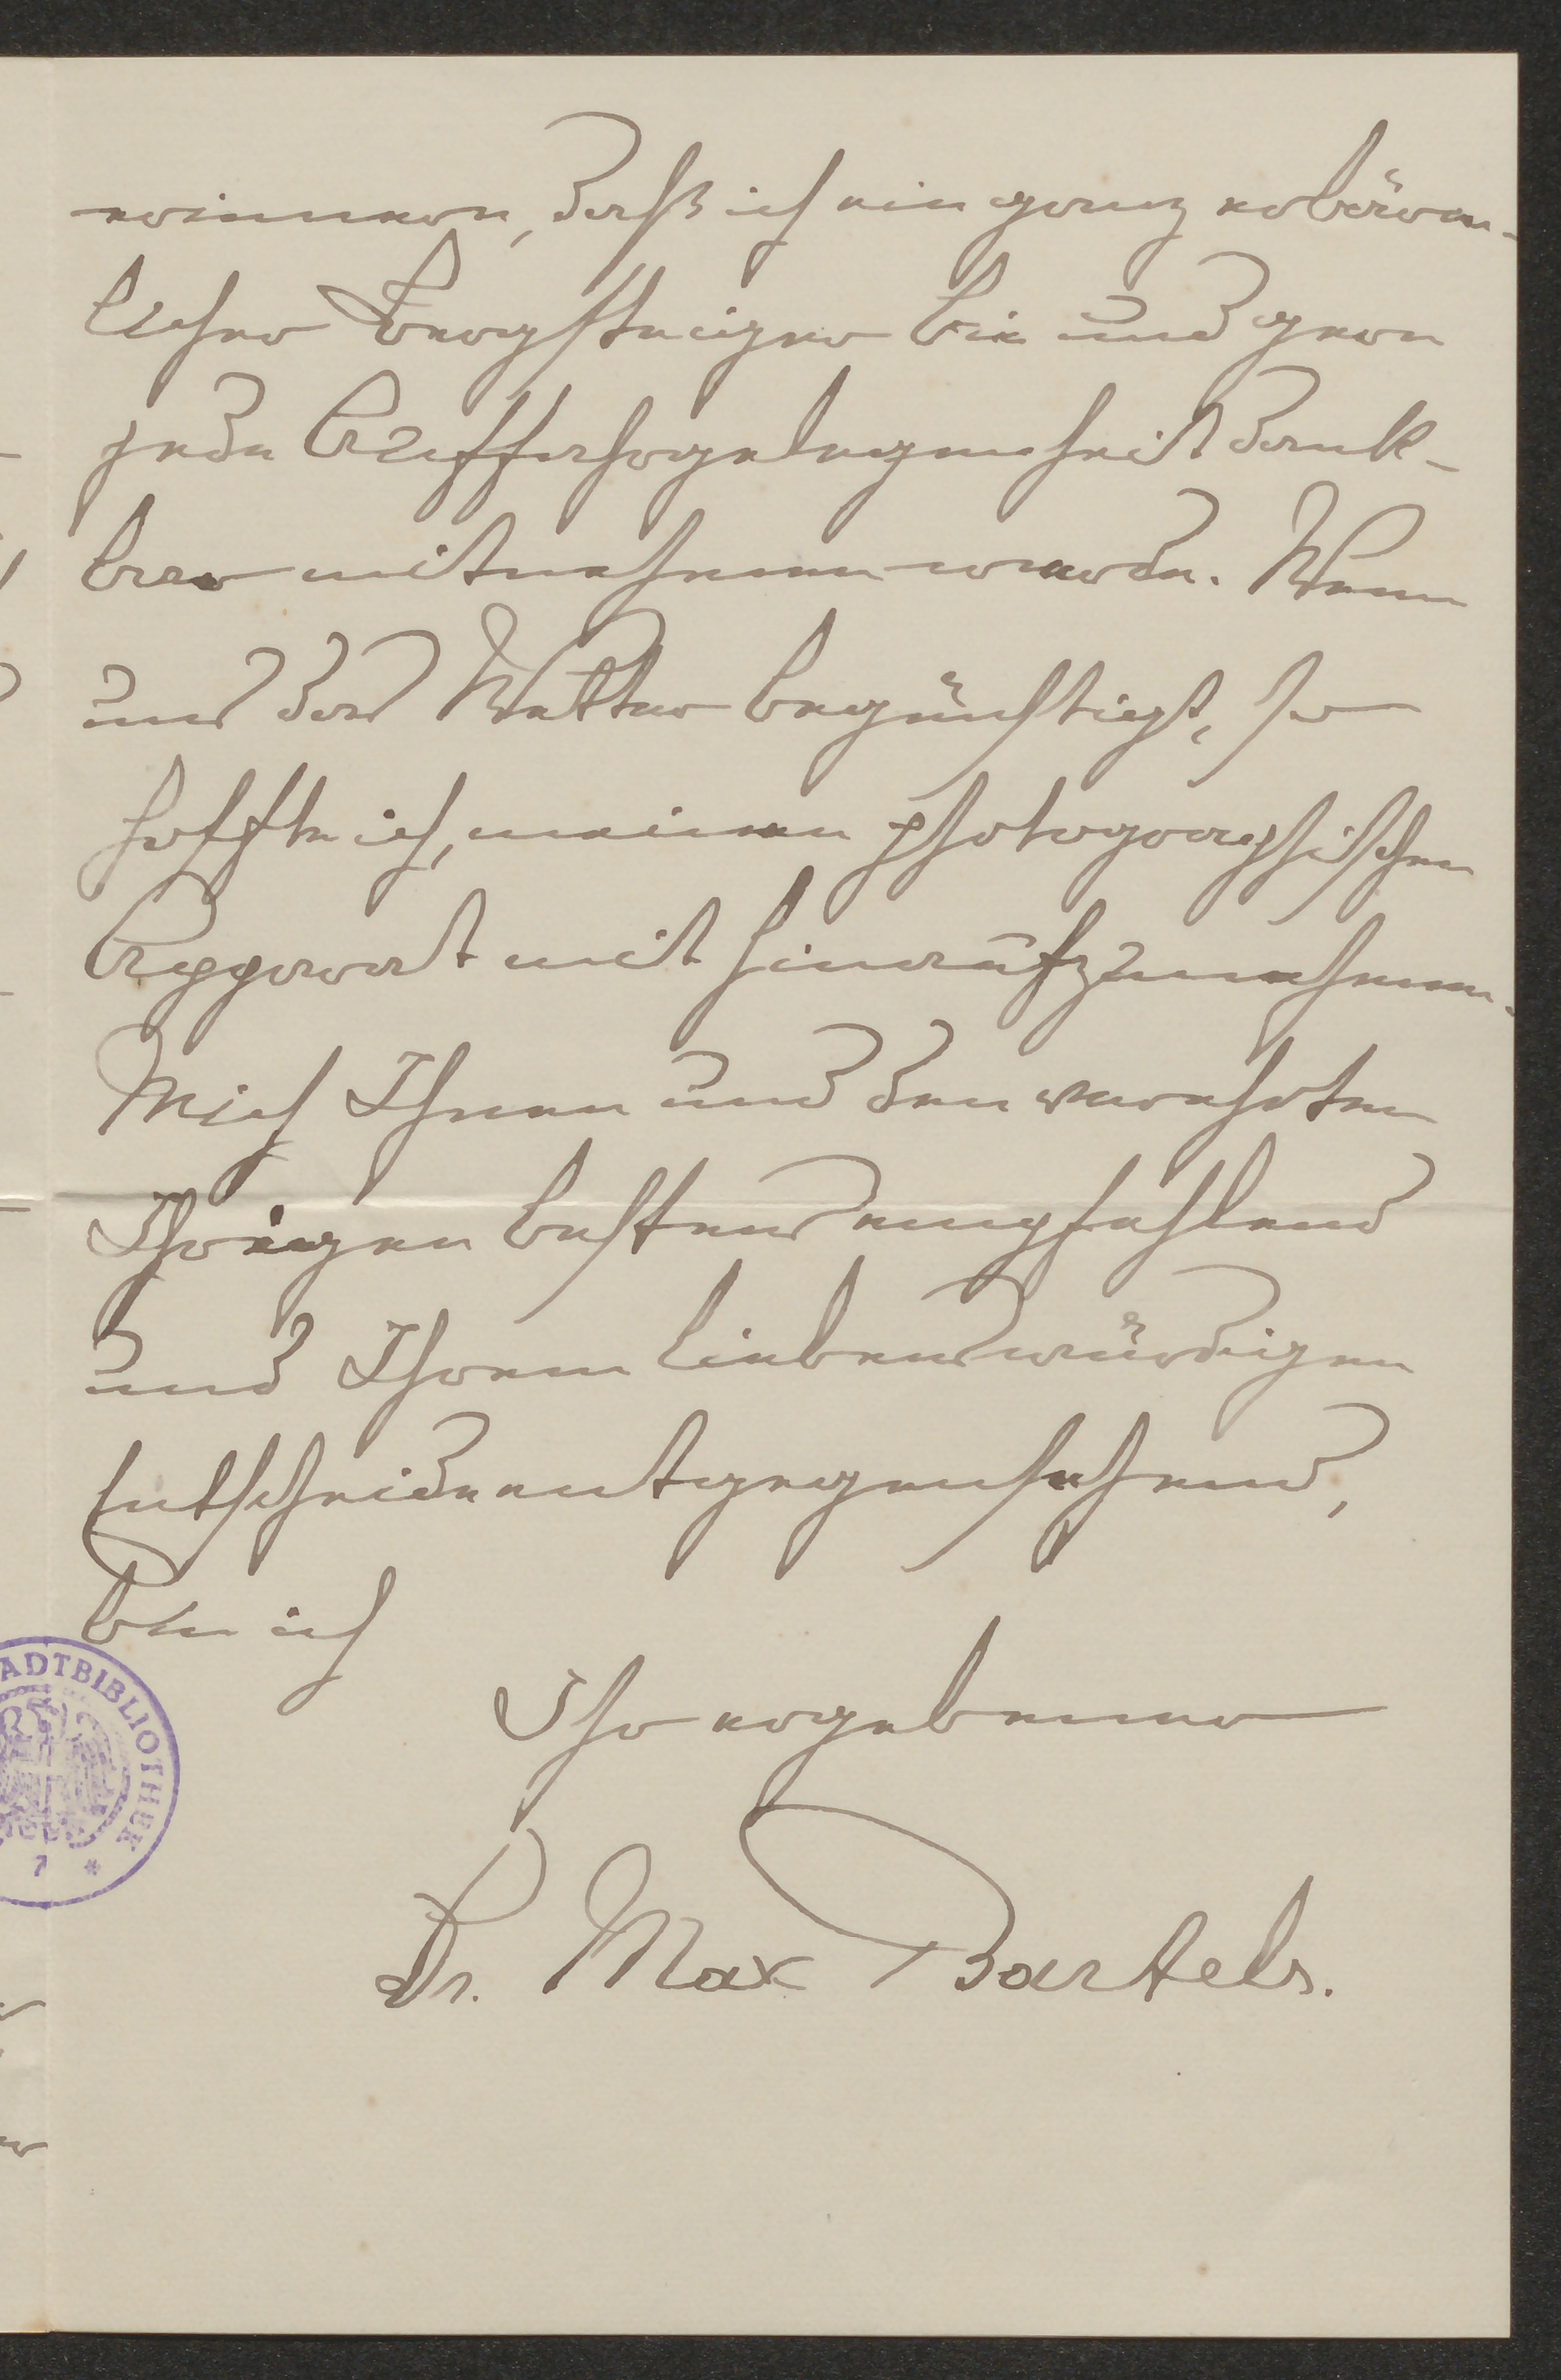 erinnern, daß ich ein ganz erbärm-
licher Bergsteiger bin und gern
jede Auffahrgelegenheit dank-
bar mitnehmen werde. Wenn
uns das Wetter begünstigt, so
hoffte ich, meinen photographischen
Apparat mit hinaufzunehmen.
Mich Ihnen und den verehrten
Ihrigen bestens empfehlend
und Ihrem liebenswürdigen
Entscheide entgegensehend,
bin ich
Ihr ergebener
Dr. Max Bartels.
ADTBIBLIOTHEK
7 *